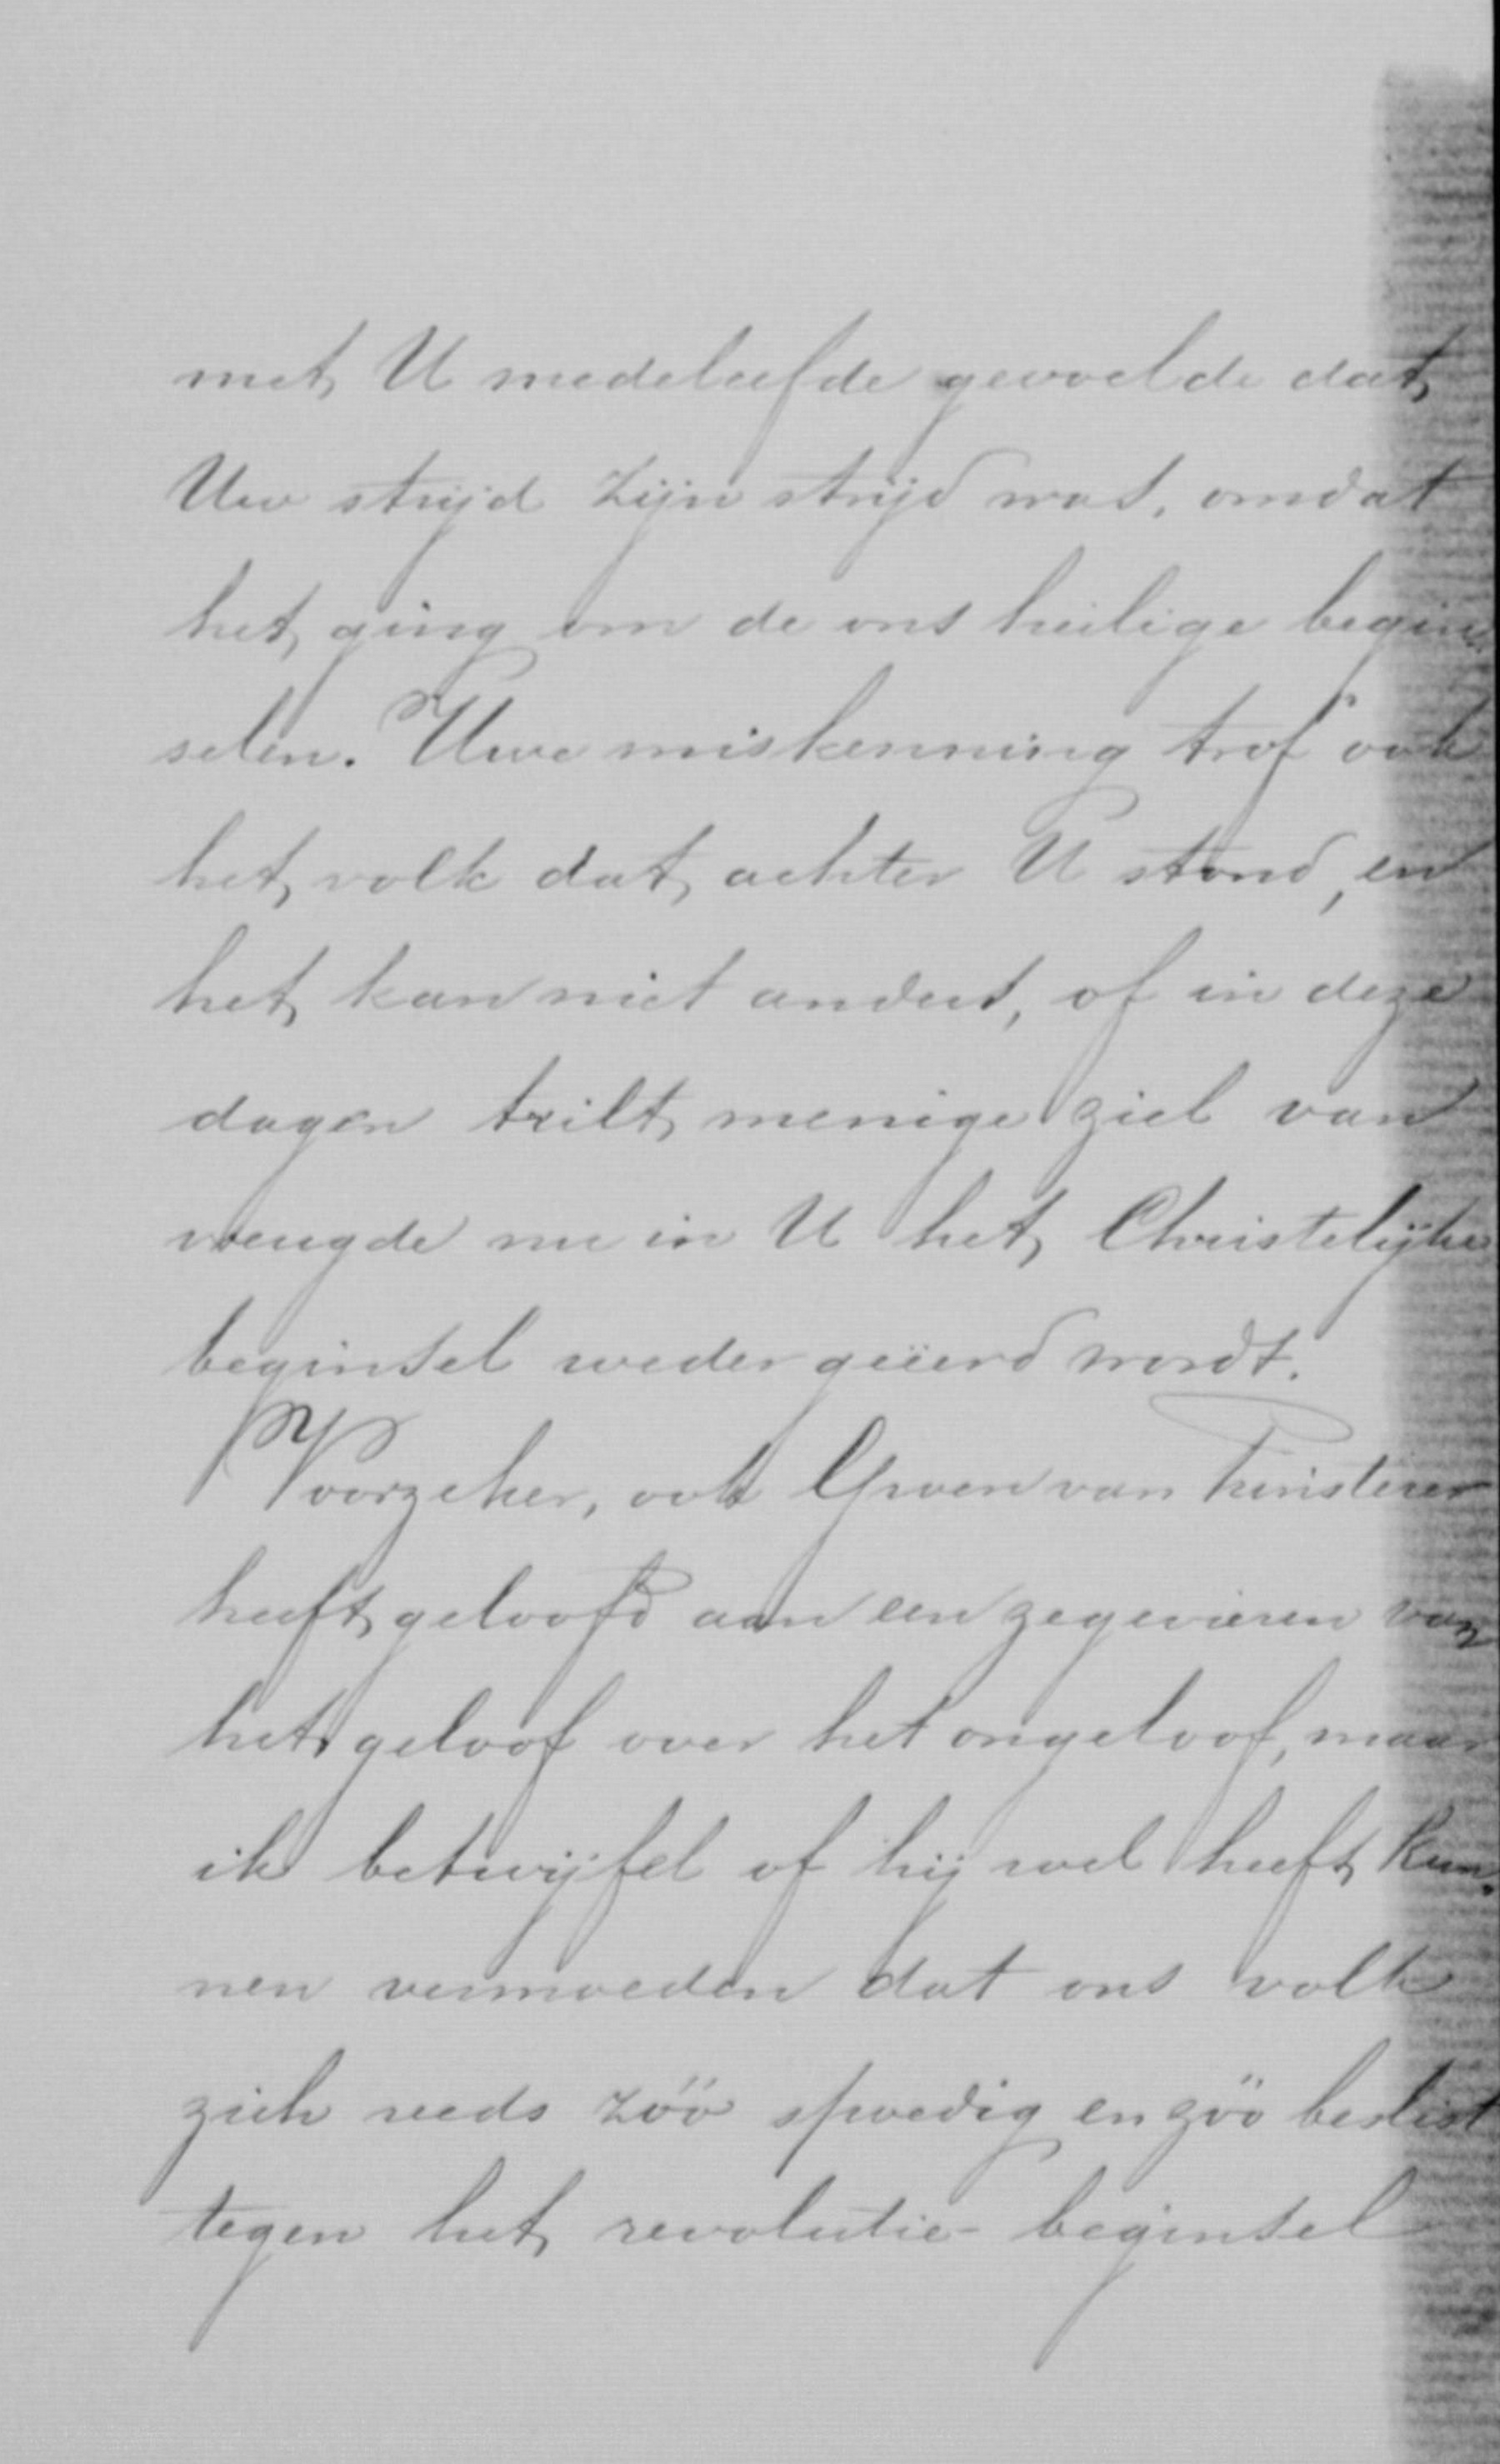 met U medeleefde gevoelde dat
Uw strijd zijn strijd was, omdat
het ging om de ons heilige begin-
selen. Uwe miskenning trof ook
het volk dat achter U stond, en
het kan niet anders, of in deze
dagen trilt menige ziel van
vreugde nu in U het Christelijke
beginsel weder geëerd wordt.
Voorzeker, ook Groen van Prinsterer
heeft geloofd aan een zegevieren van
het geloof over het ongeloof, maar
ik betwijfel of hij wel heeft kun-
nen vermoeden dat ons volk
zich reeds zóó spoedig en zóó beslist
tegen het revolutie-beginsel